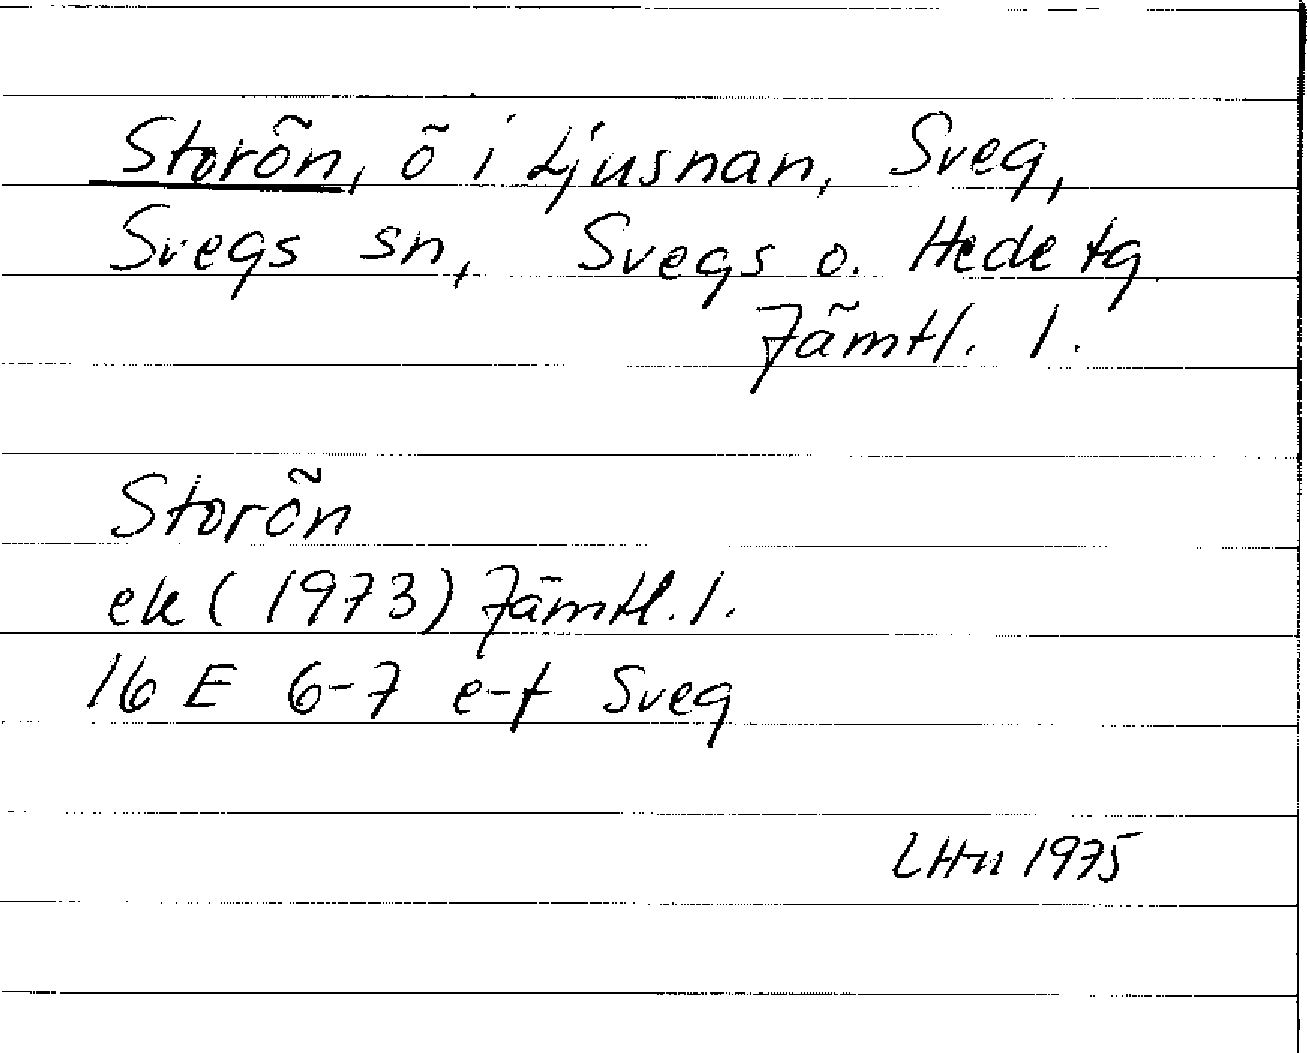 Storön, ö i Ljusnan, Sveg,
Svegs sn, Svegs o. Hede tg.
Jämtl. l.
Storön
ek (1973) Jämtl. l.
16 E 6-7 e-f Sveg
LHn 1975